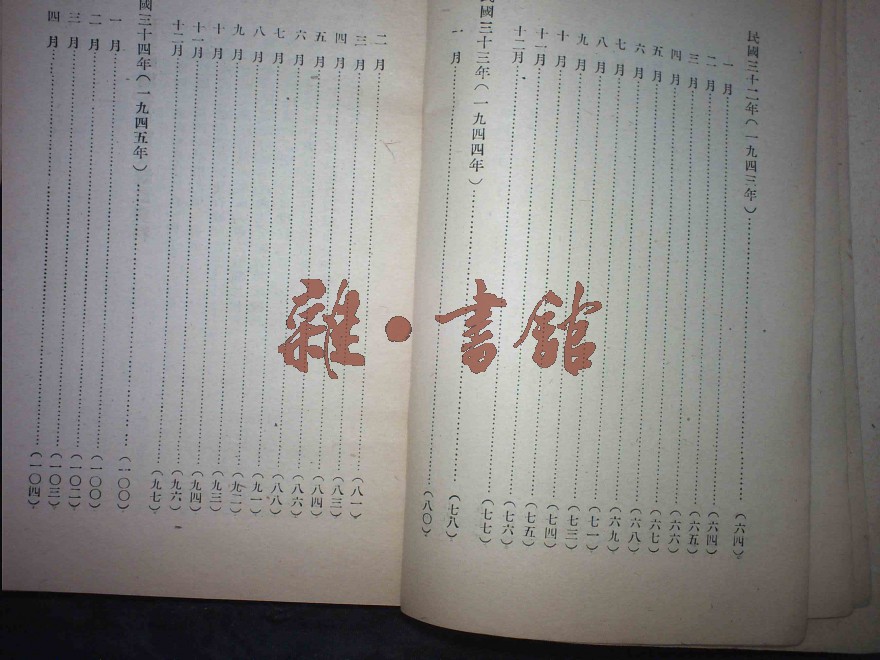 民國三十二年(一九四三年)……(六四)
一月……(六四)
二月……(六五)
三月……(六六)
四月……(六七)
五月……(六八)
六月……(六九)
七月……(七一)
八月……(七三)
九月……(七四)
十月……(七五)
十一月……(七六)
十二月……(七七)
民國三十三年(一九四四年)……(七八)
一月……(八〇)
二月……(八一)
三月……(八三)
四月……(八四)
五月……(八六)
六月……(八八)
七月……(九一)
八月……(九二)
九月……(九三)
十月……(九四)
十一月……(九六)
十二月……(九七)
國三十四年(一九四五年)……(一〇〇)
一月……(一〇〇)
二月……(一〇二)
三月……(一〇三)
四月……(一〇四)
雜·書館